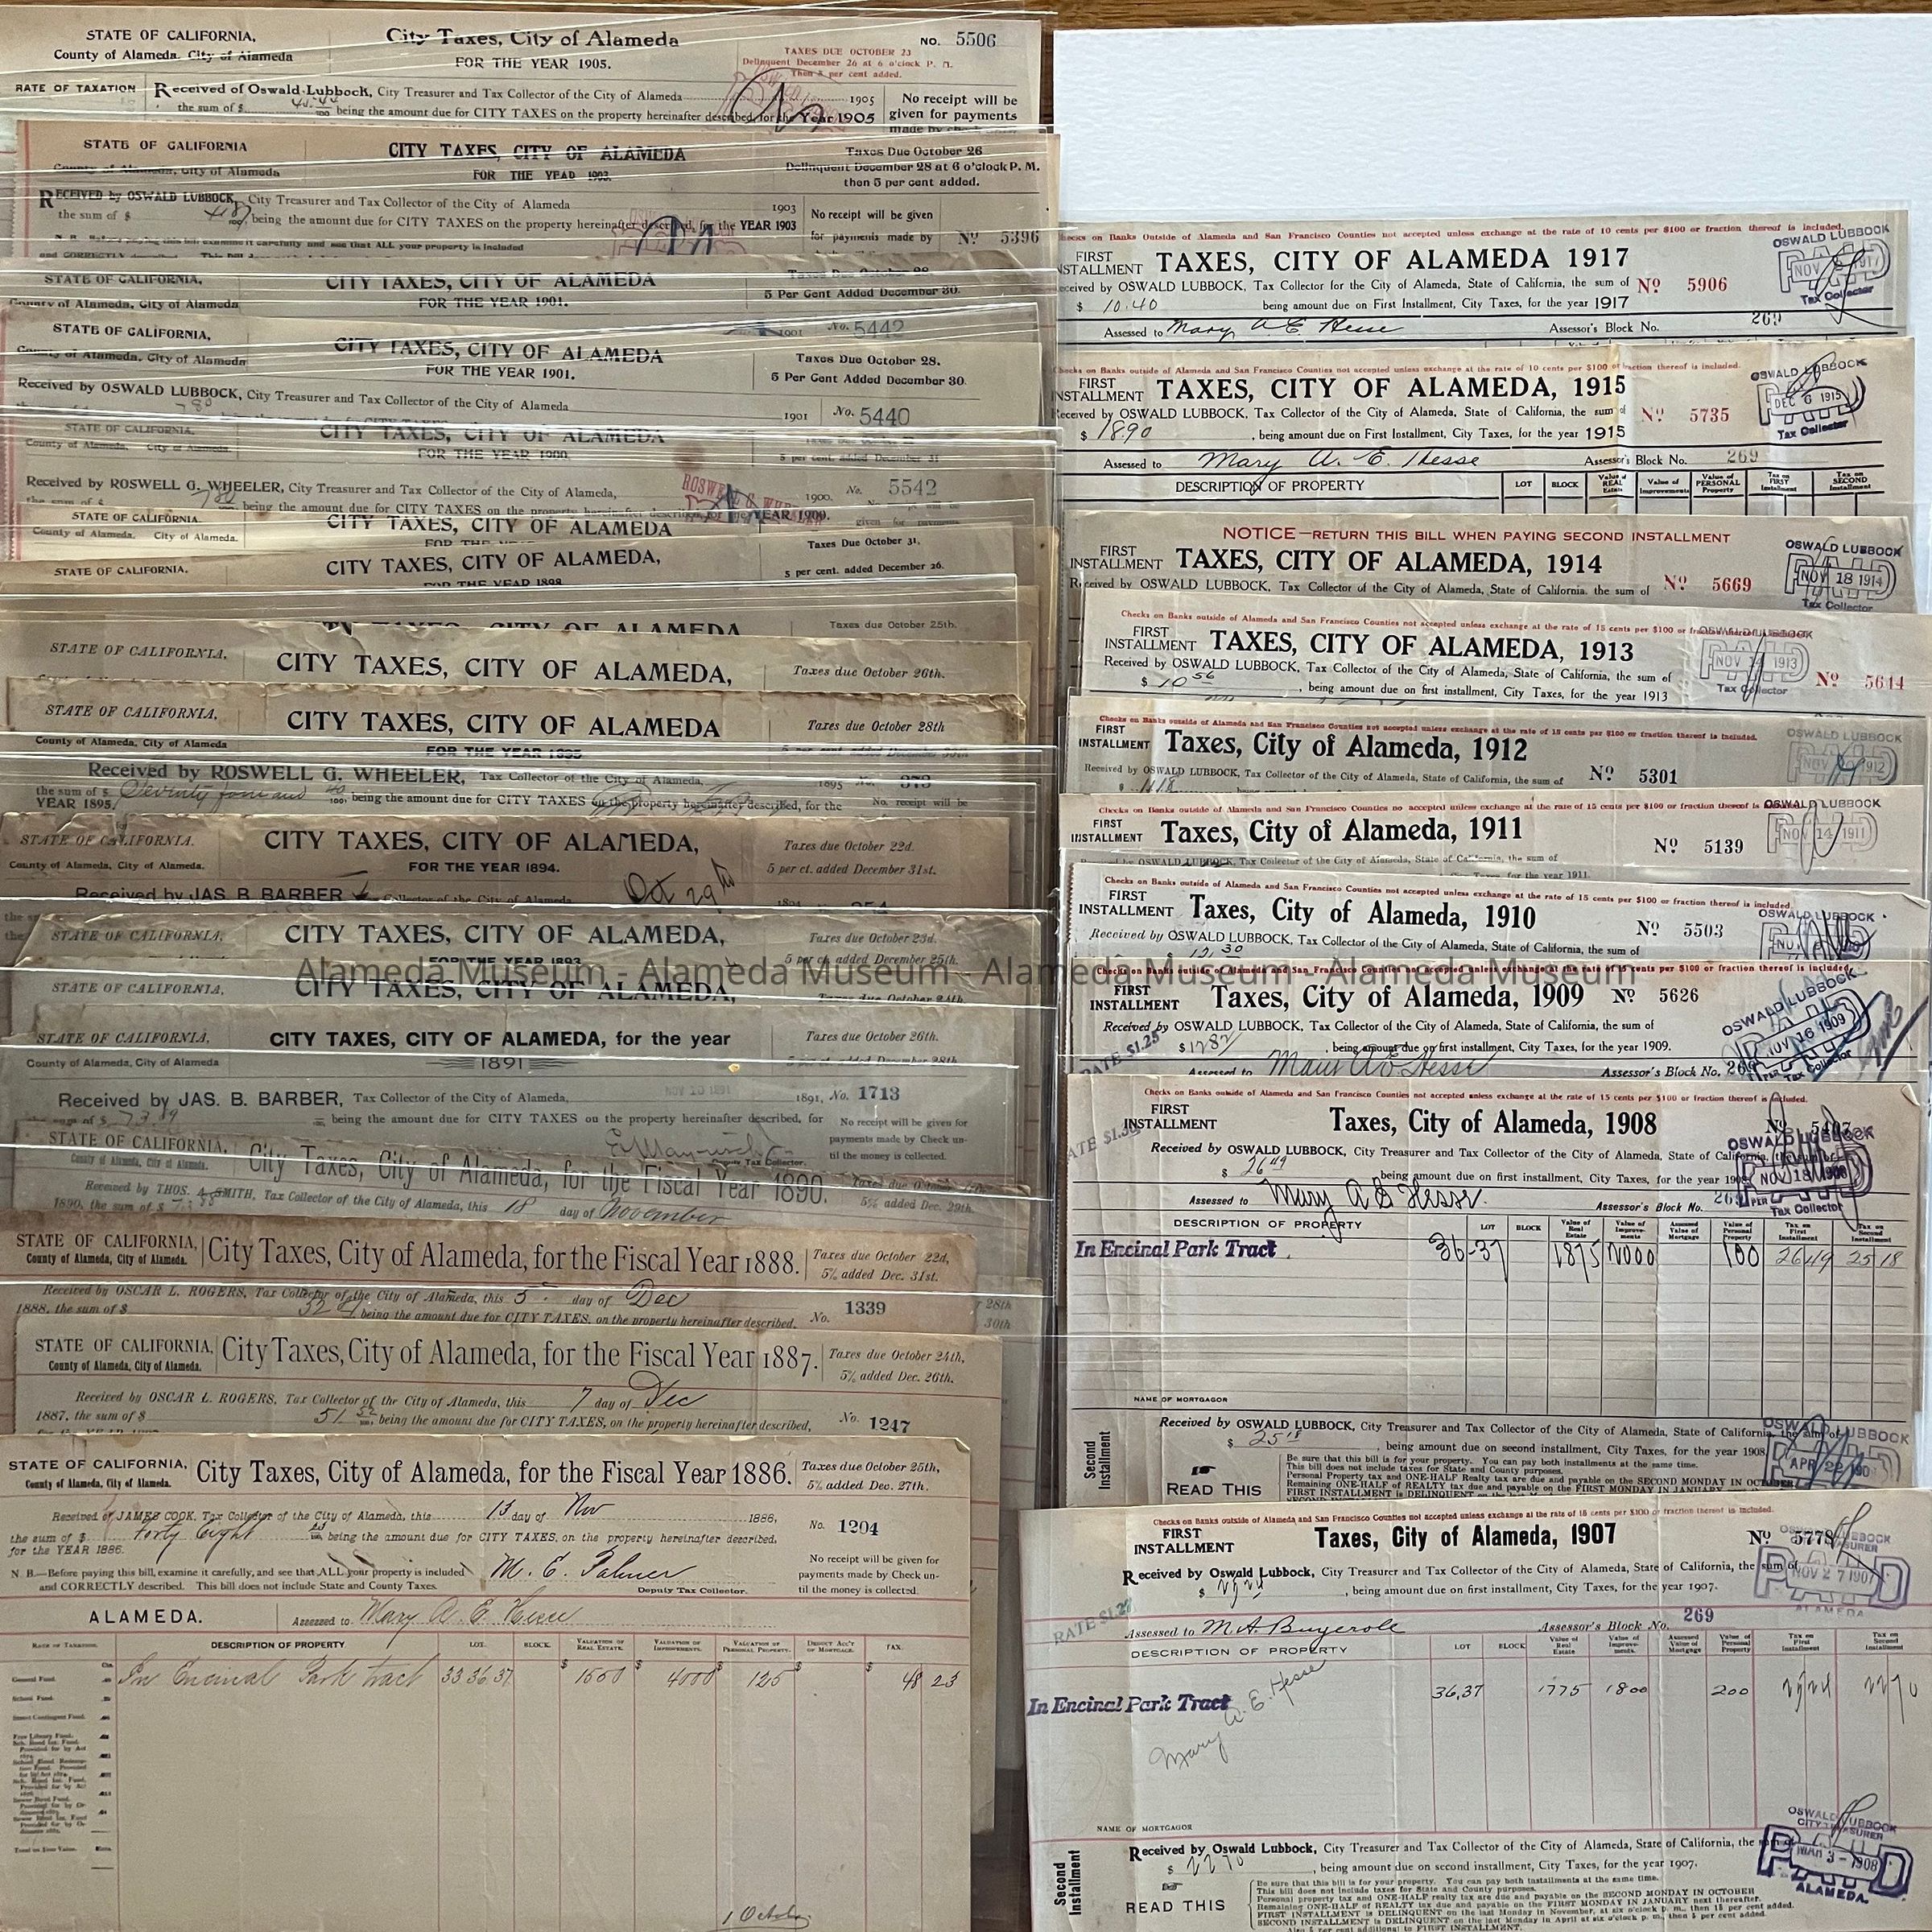 STATE OF CALIFORNIA,
County of Alameda. City of Alameda
City Taxes, City of Alameda
FOR THE YEAR 1905.
NO. 5506
TAXES DUE OCTOBER 23
Delinquent December 26 at 6 o'clock P. M.
Then 5 per cent added.
RATE OF TAXATION
Received of Oswald Lubbock, City Treasurer and Tax Collector of the City of Alameda 1905
the sum of $ being the amount due for CITY TAXES on the property hereinafter described, for the Year 1905
No receipt will be
given for payments
made by check
STATE OF CALIFORNIA
County of Alameda, City of Alameda
CITY TAXES, CITY OF ALAMEDA
FOR THE YEAR 1903.
Taxes Due October 26
Delinquent December 28 at 6 o'clock P. M.
then 5 per cent added.
RECEIVED by OSWALD LUBBOCK, City Treasurer and Tax Collector of the City of Alameda 1903
the sum of $ being the amount due for CITY TAXES on the property hereinafter described, for the YEAR 1903
No receipt will be given
for payments made by
No 5396
N. B. Before paying this bill examine it carefully and see that ALL your property is included
and CORRECTLY described.
STATE OF CALIFORNIA,
County of Alameda, City of Alameda
CITY TAXES, CITY OF ALAMEDA
FOR THE YEAR 1901.
Taxes Due October 28
5 Per Cent Added December 30.
1901 No. 5442
STATE OF CALIFORNIA,
County of Alameda, City of Alameda
CITY TAXES, CITY OF ALAMEDA
FOR THE YEAR 1901.
Taxes Due October 28.
5 Per Cent Added December 30.
Received by OSWALD LUBBOCK, City Treasurer and Tax Collector of the City of Alameda
1901 No. 5440
STATE OF CALIFORNIA,
County of Alameda, City of Alameda
CITY TAXES, CITY OF ALAMEDA
FOR THE YEAR 1900.
5 per cent. added December 31
Received by ROSWELL G. WHEELER, City Treasurer and Tax Collector of the City of Alameda,
1900. No. 5542
the sum of $ 780 being the amount due for CITY TAXES on the property hereinafter described, for the YEAR 1900.
ROSWELL G. WHEELER
STATE OF CALIFORNIA.
County of Alameda. City of Alameda.
CITY TAXES, CITY OF ALAMEDA
STATE OF CALIFORNIA.
CITY TAXES, CITY OF ALAMEDA,
FOR THE YEAR 1898
Taxes Due October 31.
5 per cent. added December 26.
CITY TAXES, CITY OF ALAMEDA
Taxes due October 25th.
STATE OF CALIFORNIA,
CITY TAXES, CITY OF ALAMEDA,
Taxes due October 26th.
STATE OF CALIFORNIA,
County of Alameda, City of Alameda
CITY TAXES, CITY OF ALAMEDA
FOR THE YEAR 1895
Taxes due October 28th
5 per cent. added December 30th
Received by ROSWELL G. WHEELER, Tax Collector of the City of Alameda, 1895 No. 373
the sum of $ Seventy four and being the amount due for CITY TAXES on the property hereinafter described, for the
YEAR 1895.
No. receipt will be
STATE OF CALIFORNIA.
County of Alameda, City of Alameda.
CITY TAXES, CITY OF ALAMEDA,
FOR THE YEAR 1894.
Taxes due October 22d.
5 per ct. added December 31st.
Received by JAS. B. BARBER
Oct 29th
STATE OF CALIFORNIA,
CITY TAXES, CITY OF ALAMEDA,
FOR THE YEAR 1893
Taxes due October 23d.
5 per ct. added December 25th.
Alameda Museum - Alameda Museum - Alameda Museum - Alameda Museum
STATE OF CALIFORNIA,
CITY TAXES, CITY OF ALAMEDA,
Taxes due October 24th.
STATE OF CALIFORNIA,
County of Alameda, City of Alameda
CITY TAXES, CITY OF ALAMEDA, for the year
1891
Taxes due October 26th.
Received by JAS. B. BARBER, Tax Collector of the City of Alameda,
NOV 20 1891
1891, No. 1713
being the amount due for CITY TAXES on the property hereinafter described, for
Deputy Tax Collector.
No receipt will be given for
payments made by Check un-
til the money is collected.
STATE OF CALIFORNIA,
County of Alameda, City of Alameda.
City Taxes, City of Alameda, for the Fiscal Year 1890.
5% added Dec. 29th.
Received by THOS. A. SMITH, Tax Collector of the City of Alameda, this 18 day of November
1890, the sum of $
STATE OF CALIFORNIA,
County of Alameda, City of Alameda.
City Taxes, City of Alameda, for the Fiscal Year 1888.
Taxes due October 22d,
5% added Dec. 31st.
Received by OSCAR L. ROGERS, Tax Collector of the City of Alameda, this 5 day of Dec
1888, the sum of $ being the amount due for CITY TAXES, on the property hereinafter described,
No. 1339
28th
30th
STATE OF CALIFORNIA,
County of Alameda, City of Alameda.
City Taxes, City of Alameda, for the Fiscal Year 1887.
Taxes due October 24th,
5% added Dec. 26th.
Received by OSCAR L. ROGERS, Tax Collector of the City of Alameda, this 7 day of Dec
1887, the sum of $ 51 being the amount due for CITY TAXES, on the property hereinafter described,
No. 1247
STATE OF CALIFORNIA,
County of Alameda, City of Alameda.
City Taxes, City of Alameda, for the Fiscal Year 1886.
Taxes due October 25th,
5% added Dec. 27th.
Received of JAMES COOK, Tax Collector of the City of Alameda, this 15 day of Nov 1886,
the sum of $ Forty Eight being the amount due for CITY TAXES, on the property hereinafter described,
for the YEAR 1886.
No. 1204
N. B.—Before paying this bill, examine it carefully, and see that ALL your property is included
and CORRECTLY described. This bill does not include State and County Taxes.
M. E. Palmer
Deputy Tax Collector.
No receipt will be given for
payments made by Check un-
til the money is collected.
ALAMEDA.
Assessed to Mary A E Hesse
RATE OF TAXATION. DESCRIPTION OF PROPERTY LOT. BLOCK. VALUATION OF REAL ESTATE. VALUATION OF IMPROVEMENTS. VALUATION OF PERSONAL PROPERTY. DEDUCT ACC'T OF MORTGAGE. TAX.
General Fund.
In Encinal Park tract 33 36 37 1500 4000 125 48 23
School Fund.
Street Contingent Fund.
1 October
Checks on Banks Outside of Alameda and San Francisco Counties not accepted unless exchange at the rate of 10 cents per $100 or fraction thereof is included.
FIRST
INSTALLMENT
TAXES, CITY OF ALAMEDA 1917
Received by OSWALD LUBBOCK, Tax Collector for the City of Alameda, State of California, the sum of
No 5906
$ 10.40 being amount due on First Installment, City Taxes, for the year 1917
OSWALD LUBBOCK
PAID
Tax Collector
Assessed to Mary A E Hesse
Assessor's Block No. 269
Checks on Banks outside of Alameda and San Francisco Counties not accepted unless exchange at the rate of 10 cents per $100 or fraction thereof is included.
FIRST
INSTALLMENT
TAXES, CITY OF ALAMEDA, 1915
Received by OSWALD LUBBOCK, Tax Collector of the City of Alameda, State of California, the sum of
No 5735
$ 1890, being amount due on First Installment, City Taxes, for the year 1915
OSWALD LUBBOCK
PAID
DEC 6 1915
Tax Collector
Assessed to Mary A. E. Hesse
Assessor's Block No. 269
DESCRIPTION OF PROPERTY LOT BLOCK Value of REAL Estate Value of Improvements Value of PERSONAL Property Tax on FIRST Installment Tax on SECOND Installment
NOTICE—RETURN THIS BILL WHEN PAYING SECOND INSTALLMENT
FIRST
INSTALLMENT
TAXES, CITY OF ALAMEDA, 1914
Received by OSWALD LUBBOCK, Tax Collector of the City of Alameda, State of California. the sum of
No 5669
OSWALD LUBBOCK
PAID
NOV 18 1914
Tax Collector
Checks on Banks outside of Alameda and San Francisco Counties not accepted unless exchange at the rate of 15 cents per $100 or fraction thereof is included.
FIRST
INSTALLMENT
TAXES, CITY OF ALAMEDA, 1913
Received by OSWALD LUBBOCK, Tax Collector of the City of Alameda, State of California, the sum of
$ 10 56, being amount due on first installment, City Taxes, for the year 1913
PAID
Tax Collector
No 5614
Checks on Banks outside of Alameda and San Francisco Counties not accepted unless exchange at the rate of 15 cents per $100 or fraction thereof is included.
FIRST
INSTALLMENT
Taxes, City of Alameda, 1912
Received by OSWALD LUBBOCK, Tax Collector of the City of Alameda, State of California, the sum of
No 5301
OSWALD LUBBOCK
PAID
Checks on Banks outside of Alameda and San Francisco Counties no accepted unless exchange at the rate of 15 cents per $100 or fraction thereof is
FIRST
INSTALLMENT
Taxes, City of Alameda, 1911
No 5139
OSWALD LUBBOCK
PAID
NOV 14 1911
Received by OSWALD LUBBOCK, Tax Collector of the City of Alameda, State of California, the sum of
City Taxes, for the year 1911
Checks on Banks outside of Alameda and San Francisco Counties not accepted unless exchange at the rate of 15 cents per $100 or fraction thereof is included.
FIRST
INSTALLMENT
Taxes, City of Alameda, 1910
No 5503
OSWALD LUBBOCK
Received by OSWALD LUBBOCK, Tax Collector of the City of Alameda, State of California, the sum of
Checks on Banks outside of Alameda and San Francisco Counties not accepted unless exchange at the rate of 15 cents per $100 or fraction thereof is included
FIRST
INSTALLMENT
Taxes, City of Alameda, 1909
No 5626
Received by OSWALD LUBBOCK, Tax Collector of the City of Alameda, State of California, the sum of
RATE $1.25
being amount due on first installment, City Taxes, for the year 1909.
OSWALD LUBBOCK
PAID
NOV 16 1909
PER Tax Collector
Assessed to Mary A E Hesse
Assessor's Block No. 269
Checks on Banks outside of Alameda and San Francisco Counties not accepted unless exchange at the rate of 15 cents per $100 or fraction thereof is included.
FIRST
INSTALLMENT
Taxes, City of Alameda, 1908
Received by OSWALD LUBBOCK, City Treasurer and Tax Collector of the City of Alameda, State of California, the sum of
$ 26 49 being amount due on first installment, City Taxes, for the year 1908
OSWALD LUBBOCK
PAID
NOV 18 1908
PER Tax Collector
Assessed to Mary A E Hesse
Assessor's Block No. 269
DESCRIPTION OF PROPERTY LOT BLOCK Value of Real Estate Value of Improvements Assessed Value of Mortgage Value of Personal Property Tax on First Installment Tax on Second Installment
In Encinal Park Tract 36-37 1875 2000 100 26 49 25 18
NAME OF MORTGAGOR
Second Installment
Received by OSWALD LUBBOCK, City Treasurer and Tax Collector of the City of Alameda, State of California, the sum of
$ 25 18, being amount due on second installment, City Taxes, for the year 1908
OSWALD LUBBOCK
PAID
READ THIS
Be sure that this bill is for your property. You can pay both installments at the same time.
This bill does not include taxes for State and County purposes.
Personal Property tax and ONE-HALF Realty tax are due and payable on the SECOND MONDAY IN OCTOBER
Remaining ONE-HALF of REALTY tax due and payable on the FIRST MONDAY IN JANUARY
FIRST INSTALLMENT is DELINQUENT
Checks on Banks outside of Alameda and San Francisco Counties not accepted unless exchange at the rate of 15 cents per $100 or fraction thereof is included.
FIRST
INSTALLMENT
Taxes, City of Alameda, 1907
No 5778
Received by Oswald Lubbock, City Treasurer and Tax Collector of the City of Alameda, State of California, the sum of
, being amount due on first installment, City Taxes, for the year 1907.
PAID
NOV 27 1907
ALAMEDA
RATE $1.27
Assessed to
Assessor's Block No. 269
DESCRIPTION OF PROPERTY LOT BLOCK Value of Real Estate Value of Improvements. Assessed Value of Mortgage Value of Personal Property Tax on First Installment Tax on Second Installment
In Encinal Park Tract 36,37 1775 1800 200 22 70
Mary A. E. Hesse
NAME OF MORTGAGOR
Second Installment
Received by Oswald Lubbock, City Treasurer and Tax Collector of the City of Alameda, State of California, the sum of
$ 22 70, being amount due on second installment, City Taxes, for the year 1907.
OSWALD LUBBOCK
CITY TREASURER
PAID
MAR 3 - 1908
ALAMEDA.
READ THIS
Be sure that this bill is for your property. You can pay both installments at the same time.
This bill does not include taxes for State and County purposes.
Personal property tax and ONE-HALF realty tax are due and payable on the SECOND MONDAY IN OCTOBER
Remaining ONE-HALF of REALTY tax due and payable on the FIRST MONDAY IN JANUARY next thereafter.
FIRST INSTALLMENT is DELINQUENT on the last Monday in November, at six o'clock p. m., then 15 per cent added.
SECOND INSTALLMENT is DELINQUENT on the last Monday in April at six o'clock p. m., then 5 per cent added.
Also 5 per cent additional to FIRST INSTALLMENT.